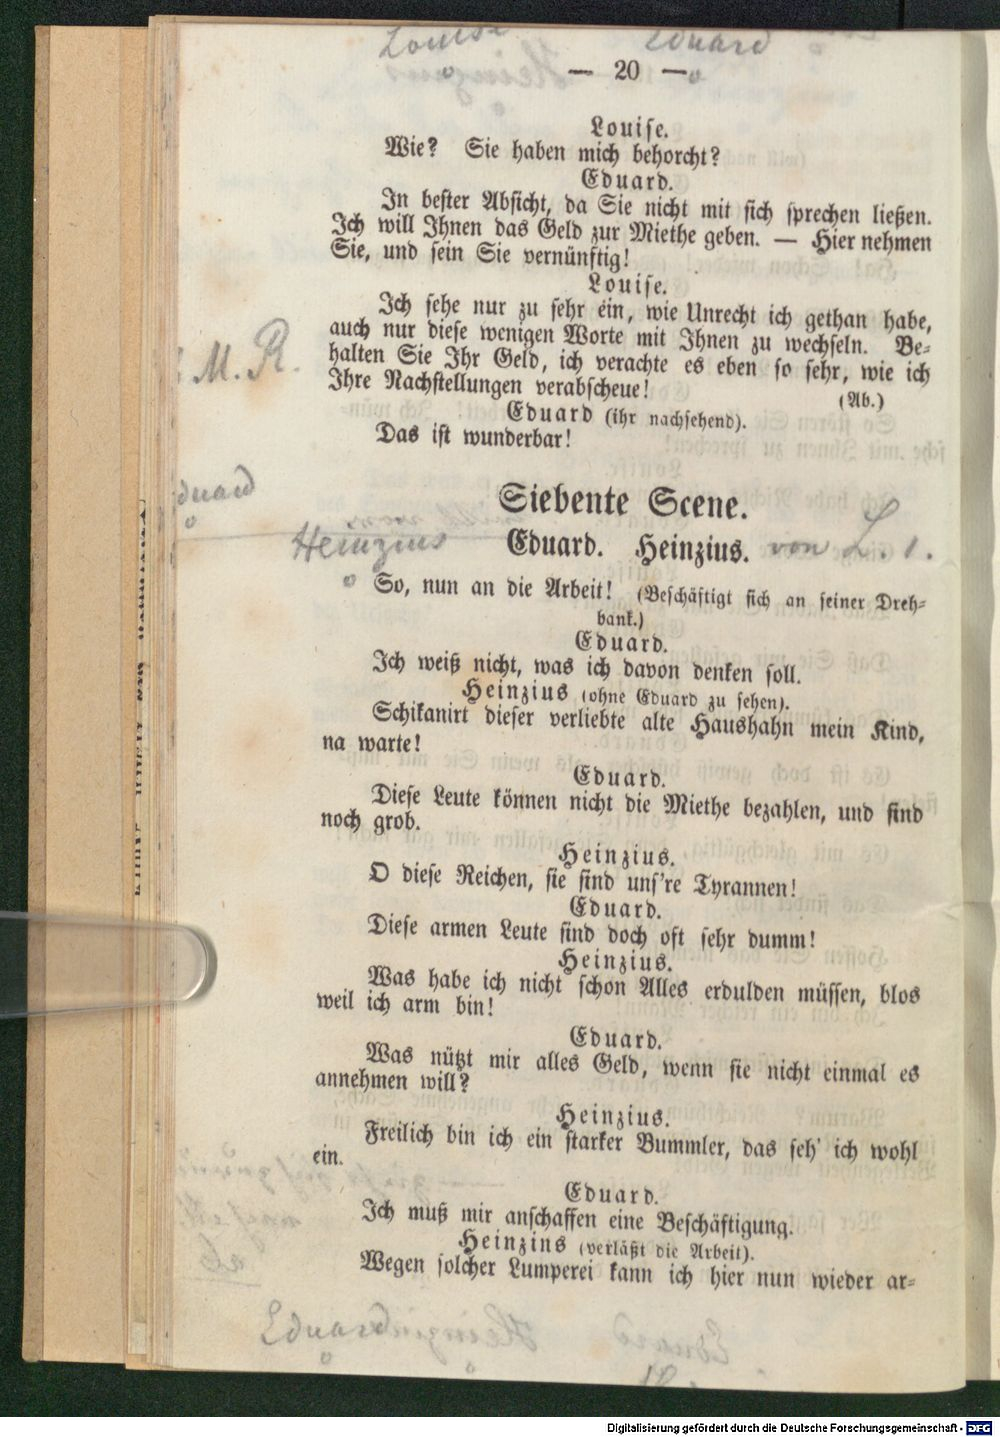 Louise Eduard
— 20 —
Louise.
Wie? Sie haben mich behorcht?
Eduard.
In bester Absicht, da Sie nicht mit sich sprechen ließen.
Ich will Ihnen das Geld zur Miethe geben. — Hier nehmen
Sie, und sein Sie vernünftig!
Louise.
Ich sehe nur zu sehr ein, wie Unrecht ich gethan habe,
auch nur diese wenigen Worte mit Ihnen zu wechseln. Be-
halten Sie Ihr Geld, ich verachte es eben so sehr, wie ich
Ihre Nachstellungen verabscheue!
(Ab.)
M. R.
Eduard (ihr nachsehend).
Das ist wunderbar!
Eduard
Siebente Scene.
Heinzius
Eduard. Heinzius. von L. 1.
So, nun an die Arbeit! (Beschäftigt sich an seiner Dreh-
bank.)
Eduard.
Ich weiß nicht, was ich davon denken soll.
Heinzius (ohne Eduard zu sehen).
Schikanirt dieser verliebte alte Haushahn mein Kind,
na warte!
Eduard.
Diese Leute können nicht die Miethe bezahlen, und sind
noch grob.
Heinzius.
O diese Reichen, sie sind uns're Tyrannen!
Eduard.
Diese armen Leute sind doch oft sehr dumm!
Heinzius.
Was habe ich nicht schon Alles erdulden müssen, blos
weil ich arm bin!
Eduard.
Was nützt mir alles Geld, wenn sie nicht einmal es
annehmen will?
Heinzius.
Freilich bin ich ein starker Bummler, das seh' ich wohl
ein.
Eduard.
Ich muß mir anschaffen eine Beschäftigung.
Heinzins (verläßt die Arbeit).
Wegen solcher Lumperei kann ich hier nun wieder ar-
Eduard
Digitalisierung gefördert durch die Deutsche Forschungsgemeinschaft - DFG